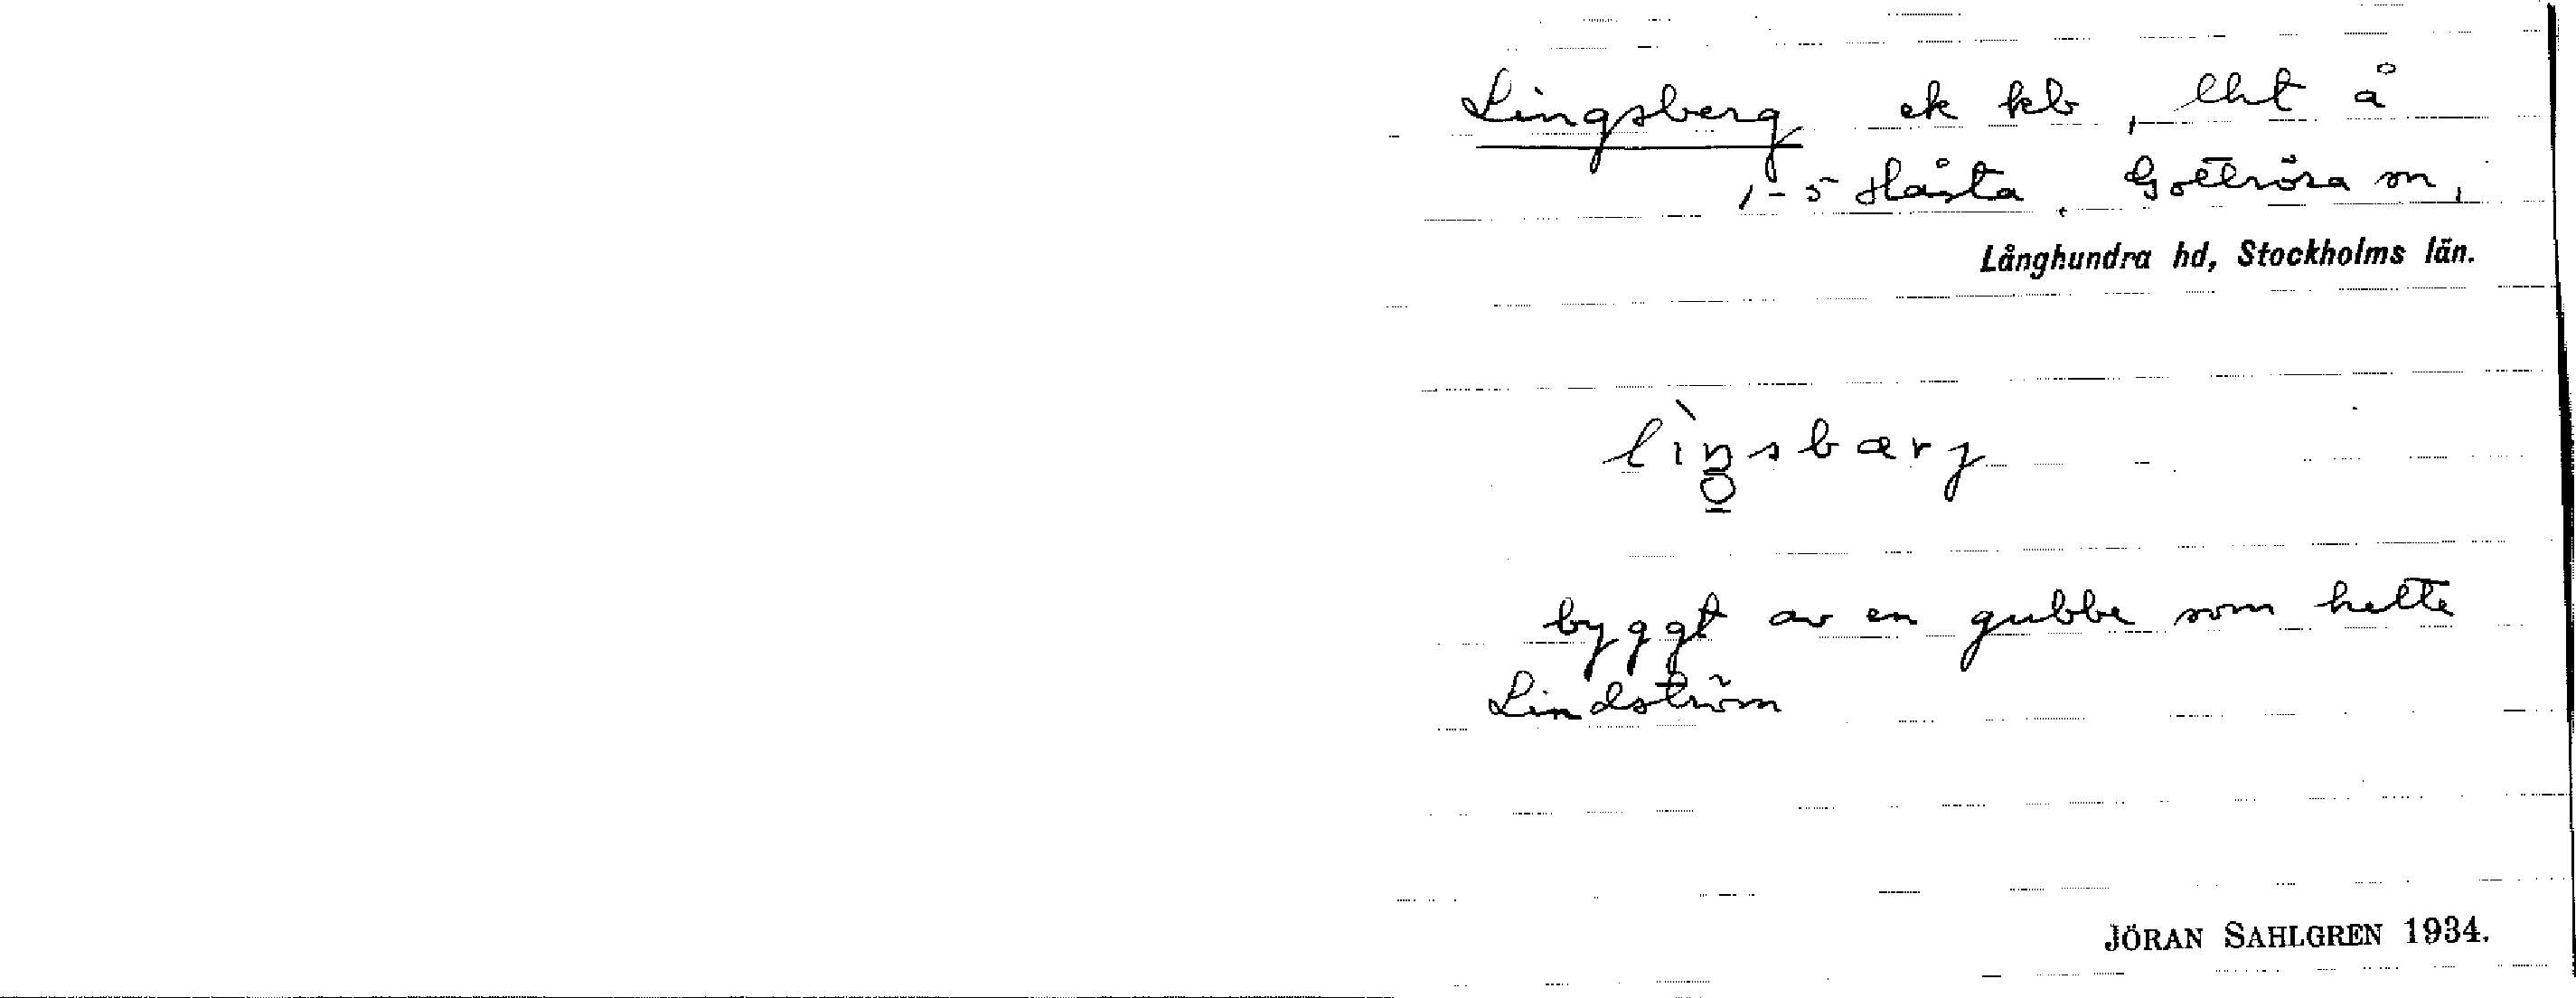 Lingsberg ek kb, lht å
1-5 Håsta, Gottröra sn,
Långhundra hd, Stockholms län.
lìŋsbærj
byggt av en gubbe som hette
Lindström
JÖRAN SAHLGREN 1934.